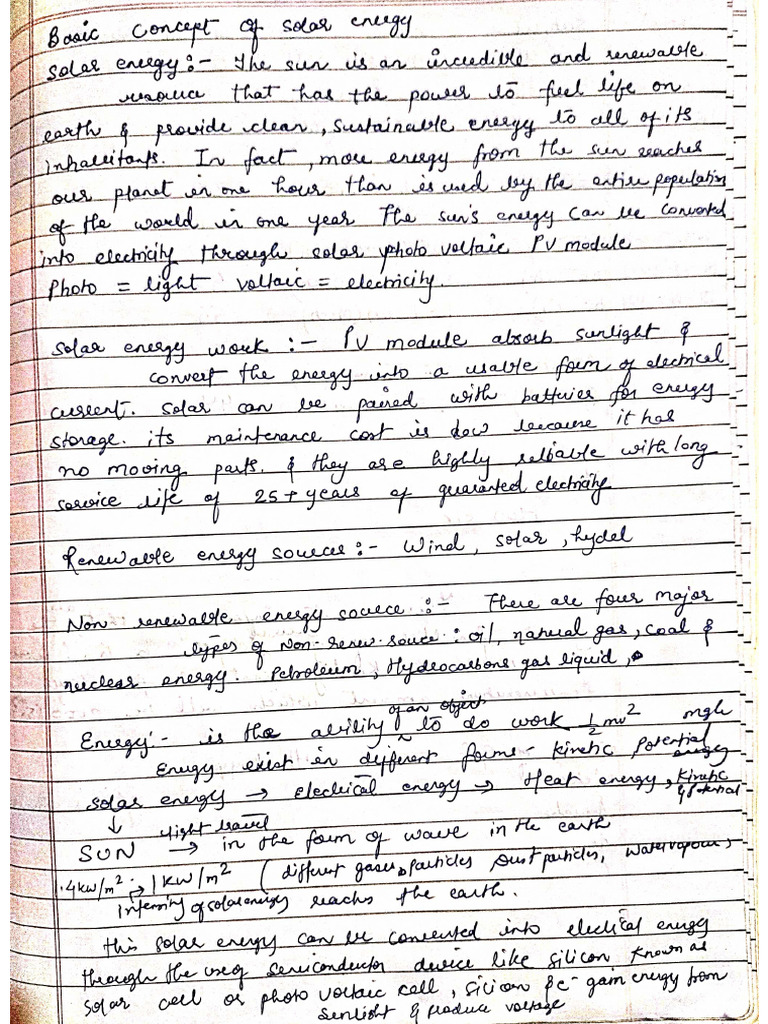 Basic Concept of solar energy
Solar energy:- The sun is an incredible and renewable
resource that has the power to fuel life on
earth & provide clean, sustainable energy to all of its
inhabitants. In fact, more energy from the sun reaches
our planet in one hour than is used by the entire population
of the world in one year The sun's energy can be converted
into electricity through solar photo voltaic PV module
Photo = light voltaic = electricity.
Solar energy work :- PV module absorb sunlight &
convert the energy into a usable form of electrical
current. Solar can be paired with batteries for energy
storage. its maintenance cost is low because it has
no moving parts. & they are highly reliable with long
service life of 25+ years of guaranted electricity
Renewable energy sources:- Wind, solar, hydel
Non renewable energy source :- There are four major
types of Non-renew. souce : oil, natural gas, coal &
nuclear energy. Petroleum, Hydrocarbons gas liquid,
of an object
Energy:- is the ability to do work 1/2 mv² mgh
Energy exist in different forms - kinetic potential energy
solar energy → electrical energy → Heat energy, kinetic & potential
↓ light travel
SUN → in the form of wave in the earth
.4kw/m² → 1 kW/m² (different gases, particles Dust particles, water vapours,
of solar energy reachs the earth.
this solar energy can be converted into electical energy
through the use of semiconductor device like silicon known as
solar cell or photo voltaic cell, silicon & e⁻ gain energy from
sunlight & produce voltage